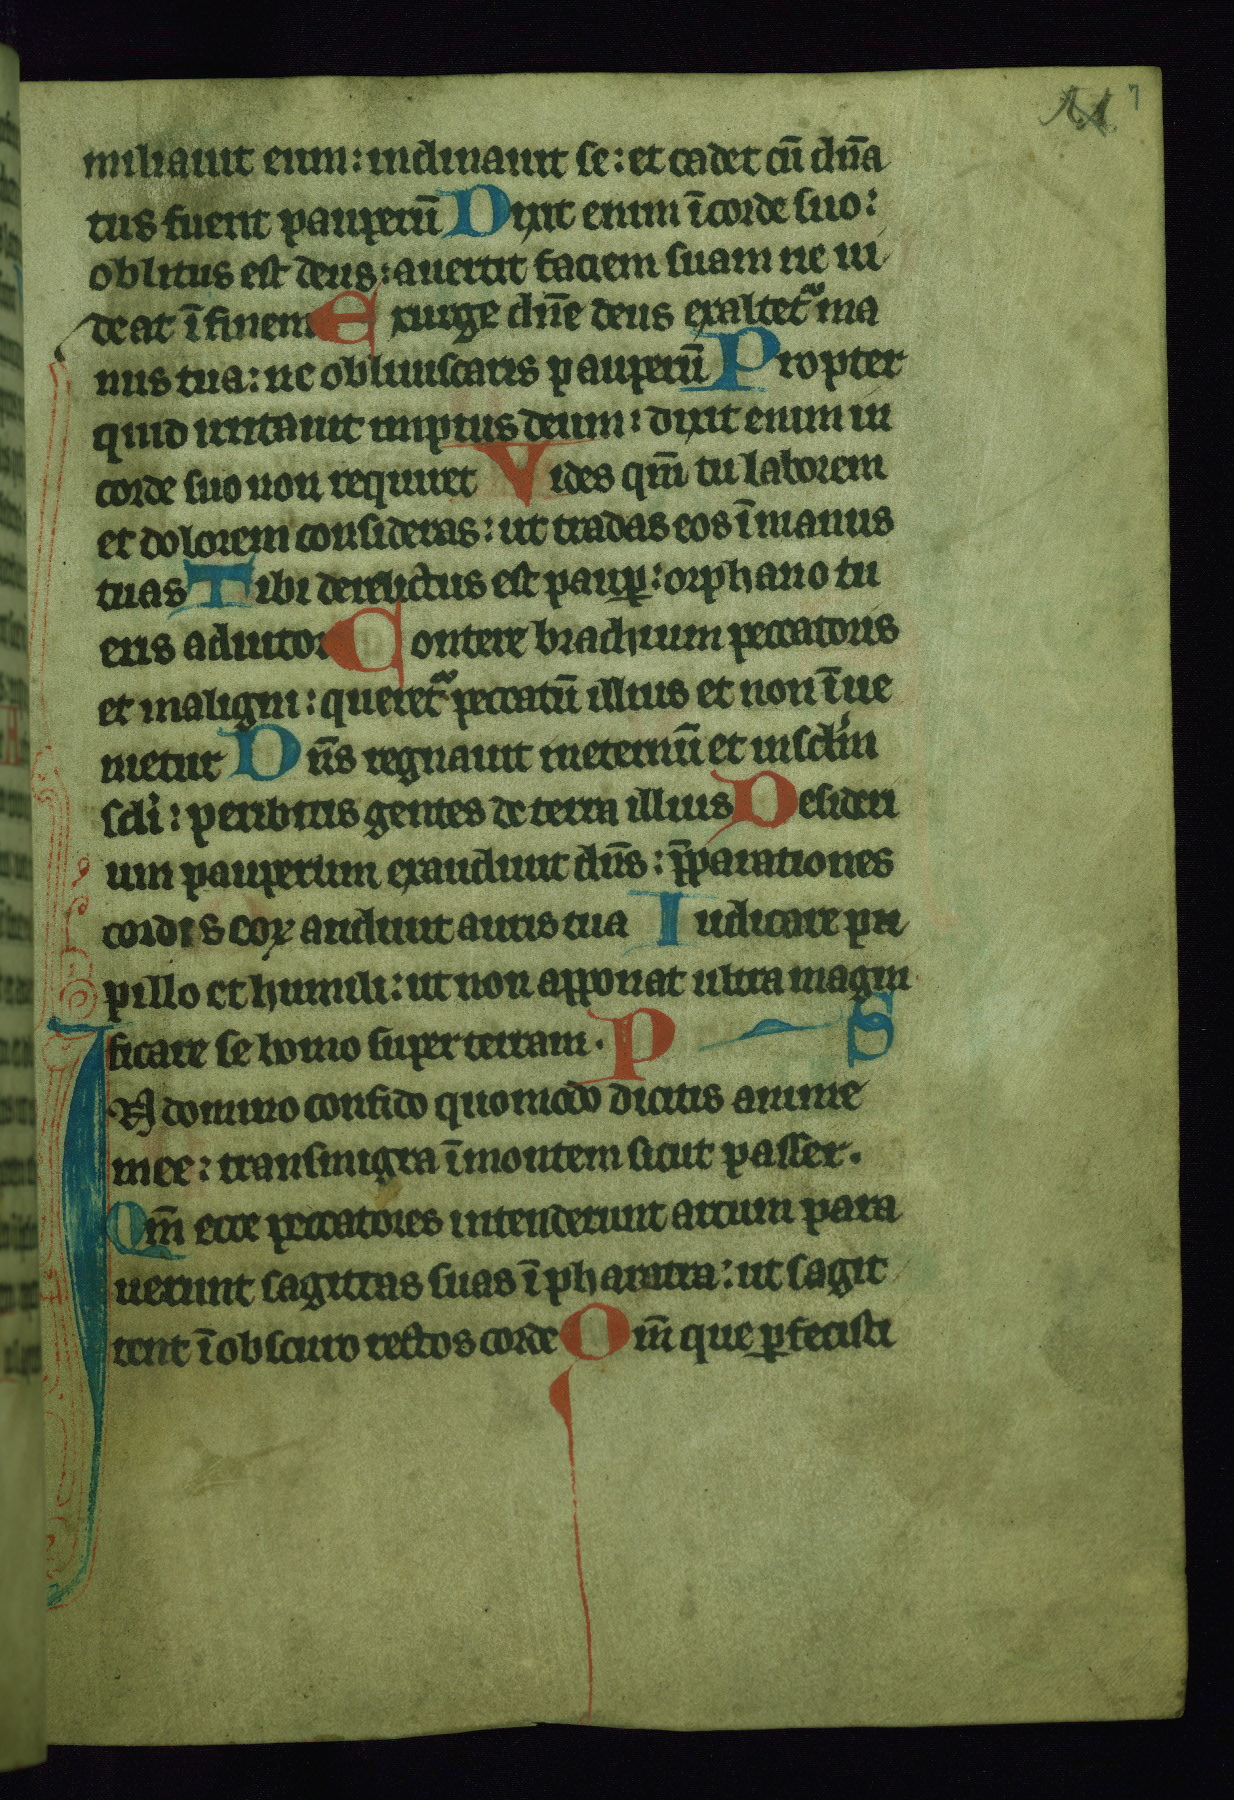 7
miliauit eum: inclinauit se: et cadet cū dn̄a
tus fuerit pauperū Dixit enim ī corde suo:
oblitus est deus: auertit faciem suam ne ui
deat ī finem Exurge dn̄e deus exaltet᷑ ma
nus tua: ne obliuiscaris pauperū Propter
quid irritauit impius deum: dixit enim in
corde suo non requiret Vides qm̄ tu laborem
et dolorem consideras: ut tradas eos ī manus
tuas Tibi derelictus est paup̱: orphano tu
eris adiutor Contere brachium peccatoris
et maligni: queret᷑ peccatū illius et non īue
nietur Dn̄s regnauit ineternū et insc̄lm
sc̄li: peribitis gentes de terra illius Desideri
um pauperum exaudiuit dn̄s: p̄parationes
cordis coꝝ audiuit auris tua Iudicare pu
pillo et humili: ut non apponat ultra magni
ficare se homo super terram. P S
IN domino confido quomodo dicitis anime
mee: transmigra ī montem sicut passer.
Qm̄ ecce peccatores intenderunt arcum para
uerunt sagittas suas ī pharatra: ut sagit
tent ī obscuro rectos corde Qm̄ que ꝑfecisti